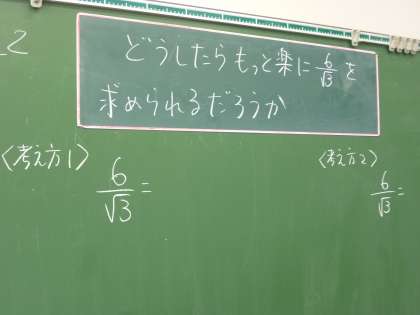 2
どうしたらもっと楽に 6/√3 を
求められるだろうか
〈考え方1〉
6/√3 =
〈考え方2〉
6/√3 =